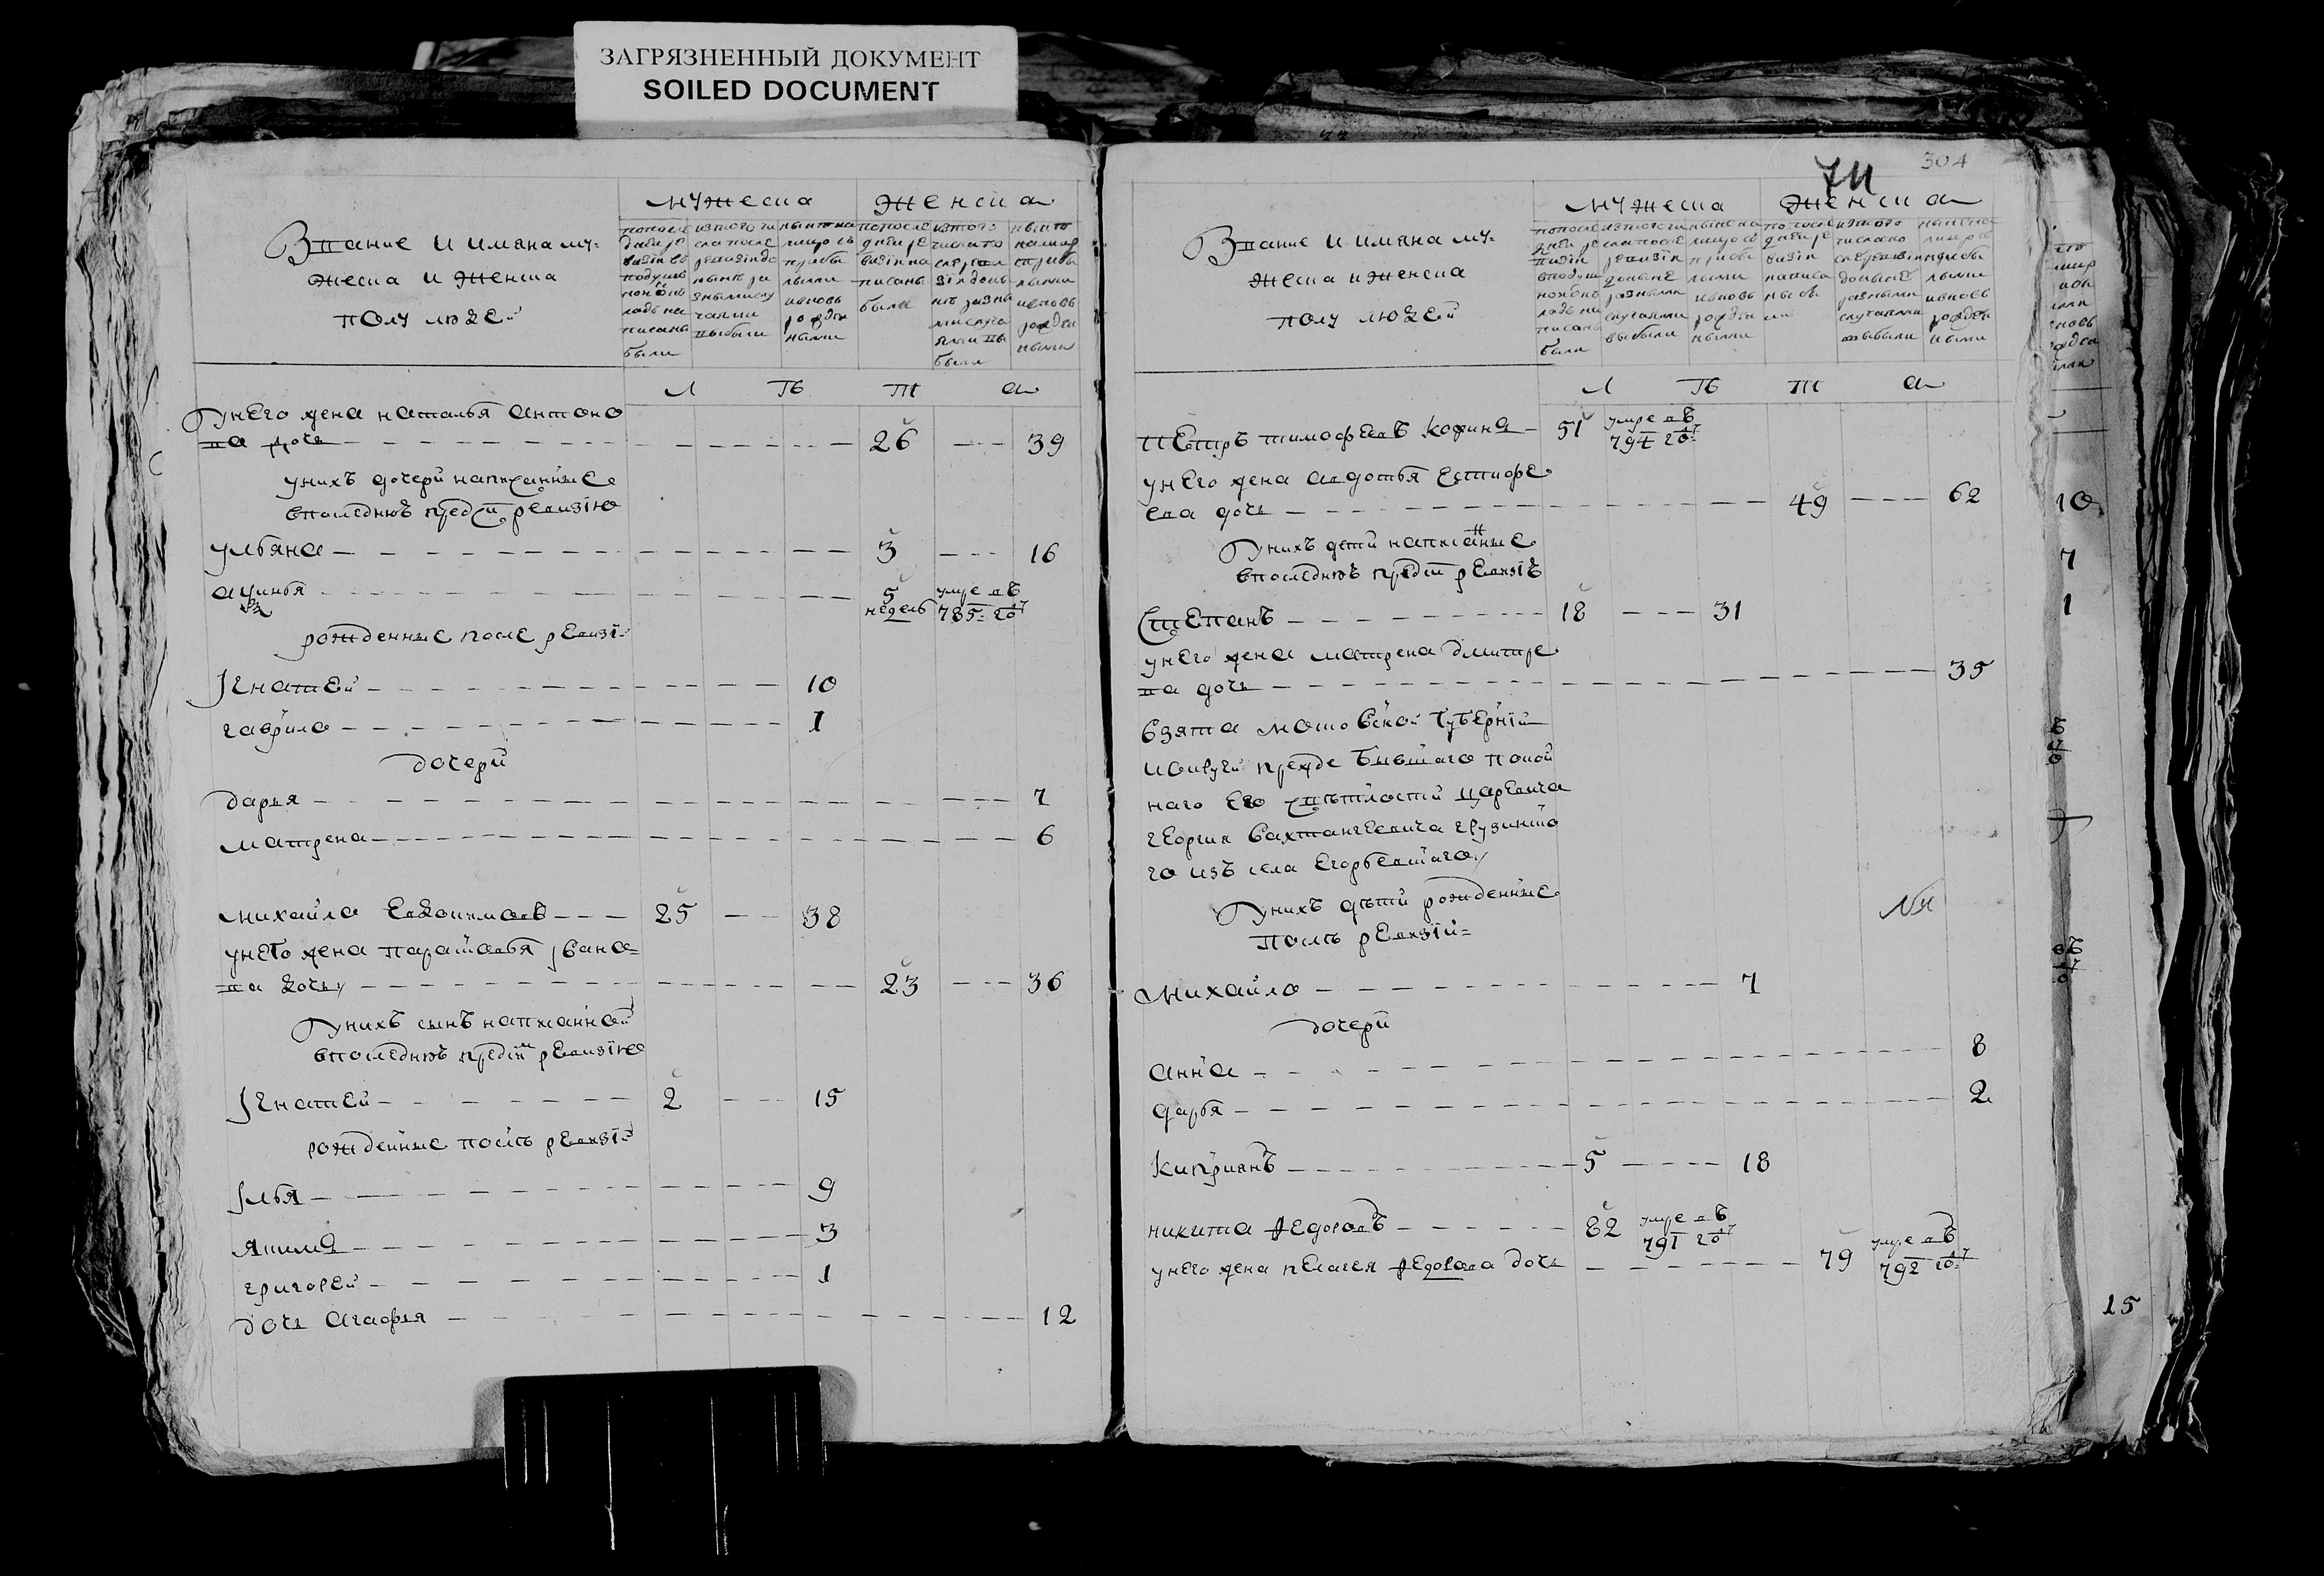 ЗАГРЯЗНЕННЫЙ ДОКУМЕНТ
SOILED DOCUMENT
Звание и имяна му=
жеска и женска
полу людей
мужеска
женска
по после
дней ре
визiи въ
подушн
писаны
были
изтого чи
сла после
ревизiи до
ныне ра
зными слу
чаями
выбыли
ныне на
лицо съ
прибы
лыми
и вновь
рожден
ными
по после
дней ре
визiи на
писаны
были
изтого
числа по
сле реви
зiи до ны
не разны
ми случа
ями вы
были
ныне
на лицо
с прибы
лыми
и вновь
рожден
ными
Л Ѣ Т а
У него жена наталья антоно
ва дочь 26 39
у нихъ дочери написанные
в последнюю пред сим ревизiю
ульяна 3 16
акулинья 5 недель умре въ 785 году
рожденные после ревизi
Iгнатей 10
гаврило 1
дочери
дарья 7
матрена 6
михайла Евдокимовъ 25 38
у него жена парасковья iвано=
ва дочь 23 36
У нихъ сынъ написанной
в последнюю пред сим ревизiю
Iгнатей 2 15
рожденные послѣ ревизi
Iлья 9
якимъ 3
григорей 1
дочь агафья 12
304
Звание и имяна му=
жеска и женска
полу людей
мужеска
женска
по после
дней ре
визiи
в подуш
писаны
были
изтого чи
сла после
ревизiи
доныне
разными
случаями
выбыли
ныне на
лицо съ
прибы
лыми
и вновь
рожден
ными
по после
дней ре
визiи
написа
ны бы
ли
изтого
числа по
сле ревизiи
доныне
разными
случаями
выбыли
ныне на
лицо с
прибы
лыми
и вновь
рожден
ными
Л Ѣ Т а
Петръ тимофеевъ 51 умре въ 794 году
у него жена авдотья Естифе
ева дочь 49 62
У нихъ дети написанные
в последнюю пред сим ревизiю
Степанъ 18 31
у него жена матрена дмитре
ва дочь 35
взята московской губернiи
прежде бывшаго покой
наго Его свѣтлости царевича
георгия вахтангеевича грузинско
го изъ села Егорьевскаго
У нихъ дѣти рожденные
послѣ ревизiи
михайло 7
дочери
анна 8
дарья 2
Киприянъ 5 18
никита Федоровъ 82 умре въ 791 году
у него жена пелагея Федорова дочь 79 умре въ 792 году
10
7
1
15